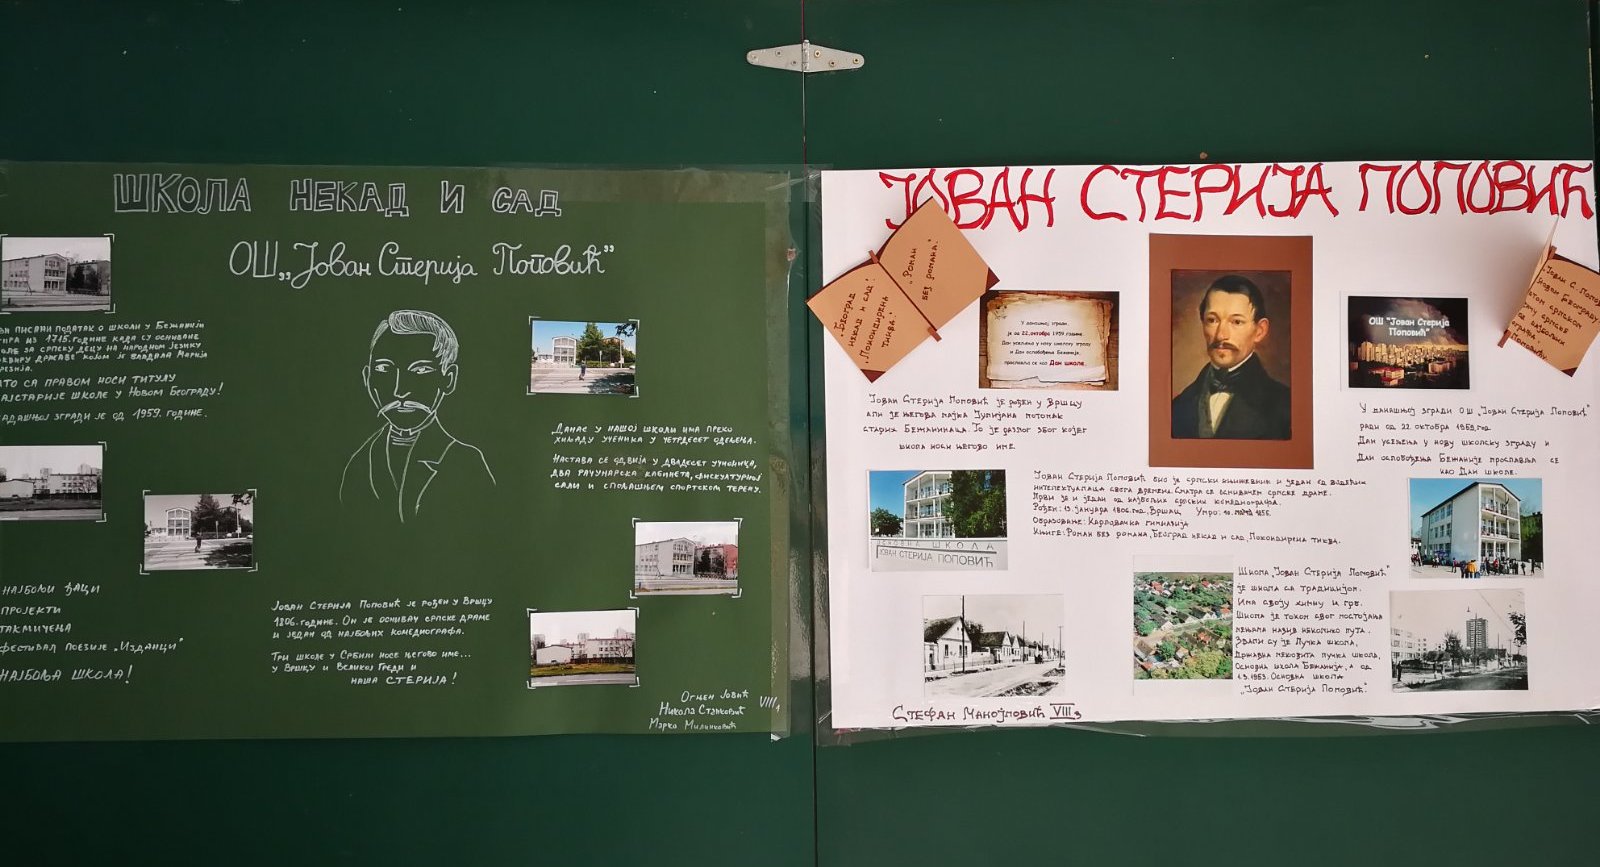 ШКОЛА НЕКАД И САД
ОШ „Јован Стерија Поповић"
ПИСАНИ ПОДАТАК О ШКОЛИ У БЕЖАНИЈИ
ИЗ 1745. ГОДИНЕ КАДА СУ ОСНИВАНЕ
ЗА СРПСКУ ДЕЦУ НА НАРОДНОМ ЈЕЗИКУ
ДРЖАВЕ КОЈОМ ЈЕ ВЛАДАЛА МАРИЈА
СА ПРАВОМ НОСИ ТИТУЛУ
ШКОЛЕ У НОВОМ БЕОГРАДУ!
ЗГРАДИ ЈЕ ОД 1959. ГОДИНЕ.
ДАНАС У НАШОЈ ШКОЛИ ИМА ПРЕКО
ХИЉАДУ УЧЕНИКА У ЧЕТРДЕСЕТ ОДЕЉЕЊА.
НАСТАВА СЕ ОДВИЈА У ДВАДЕСЕТ УЧИОНИЦА,
ДВА РАЧУНАРСКА КАБИНЕТА, ФИСКУЛТУРНОЈ
САЛИ И СПОЉАШЊЕМ СПОРТСКОМ ТЕРЕНУ.
НАЈБОЉИ ЂАЦИ
ПРОЈЕКТИ
ТАКМИЧЕЊА
ФЕСТИВАЛ ПОЕЗИЈЕ „ИЗДАНЦИ"
НАЈБОЉА ШКОЛА!
ЈОВАН СТЕРИЈА ПОПОВИЋ ЈЕ РОЂЕН У ВРШЦУ
1806. ГОДИНЕ. ОН ЈЕ ОСНИВАЧ СРПСКЕ ДРАМЕ
И ЈЕДАН ОД НАЈБОЉИХ КОМЕДИОГРАФА.
ТРИ ШКОЛЕ У СРБИЈИ НОСЕ ЊЕГОВО ИМЕ...
У ВРШЦУ И ВЕЛИКОЈ ГРЕДИ И
НАША СТЕРИЈА!
ОГЊЕН ЈОВИЋ VIII 1
НИКОЛА СТАНКОВИЋ
МАРКО МИЛИНКОВИЋ
ЈОВАН СТЕРИЈА ПОПОВИЋ
„БЕОГРАД
НЕКАД И САД!
„ПОКОНДИРЕНА
ТИКВА"
„РОМАН
БЕЗ РОМАНА"
У данашњој згради
је од 22.октобра 1959.године.
Дан усељења у нову школску зграду
и Дан ослобођења Бежаније,
прославља се као Дан школе.
ОШ "Јован Стерија
Поповић"
ЈОВАН СТЕРИЈА ПОПОВИЋ ЈЕ РОЂЕН У ВРШЦУ
АЛИ ЈЕ ЊЕГОВА МАЈКА ЈУЛИЈАНА ПОТОМАК
СТАРИХ БЕЖАНИНАЦА. ТО ЈЕ РАЗЛОГ ЗБОГ КОЈЕГ
ШКОЛА НОСИ ЊЕГОВО ИМЕ.
У ДАНАШЊОЈ ЗГРАДИ ОШ „ЈОВАН СТЕРИЈА ПОПОВИЋ"
РАДИ ОД 22. ОКТОБРА 1959.ГОД.
ДАН УСЕЉЕЊА У НОВУ ШКОЛСКУ ЗГРАДУ И
ДАН ОСЛОБОЂЕЊА БЕЖАНИЈЕ ПРОСЛАВЉА СЕ
КАО ДАН ШКОЛЕ.
ЈОВАН СТЕРИЈА ПОПОВИЋ БИО ЈЕ СРПСКИ КЊИЖЕВНИК И ЈЕДАН ОД ВОДЕЋИХ
ИНТЕЛЕКТУАЛАЦА СВОГА ВРЕМЕНА. СМАТРА СЕ ОСНИВАЧЕМ СРПСКЕ ДРАМЕ.
ПРВИ ЈЕ И ЈЕДАН ОД НАЈБОЉИХ СРПСКИХ КОМЕДИОГРАФА.
РОЂЕН: 13. ЈАНУАРА 1806.ГОД, ВРШАЦ УМРО: 10. МАРТА 1856.
ОБРАЗОВАЊЕ: КАРЛОВАЧКА ГИМНАЗИЈА
КЊИГЕ: РОМАН БЕЗ РОМАНА, БЕОГРАД НЕКАД И САД, ПОКОНДИРЕНА ТИКВА.
ОСНОВНА ШКОЛА
ЈОВАН СТЕРИЈА ПОПОВИЋ
ШКОЛА „ЈОВАН СТЕРИЈА ПОПОВИЋ"
ЈЕ ШКОЛА СА ТРАДИЦИЈОМ.
ИМА СВОЈУ ХИМНУ И ГРБ.
ШКОЛА ЈЕ ТОКОМ СВОГ ПОСТОЈАЊА
МЕЊАЛА НАЗИВ НЕКОЛИКО ПУТА.
ЗВАЛИ СУ ЈЕ ПУЧКА ШКОЛА,
ДРЖАВНА МЕШОВИТА ПУЧКА ШКОЛА,
ОСНОВНА ШКОЛА БЕЖАНИЈА, А ОД
ОСНОВНА ШКОЛА
„ЈОВАН СТЕРИЈА ПОПОВИЋ".
СТЕФАН МАНОЈЛОВИЋ VIII 3